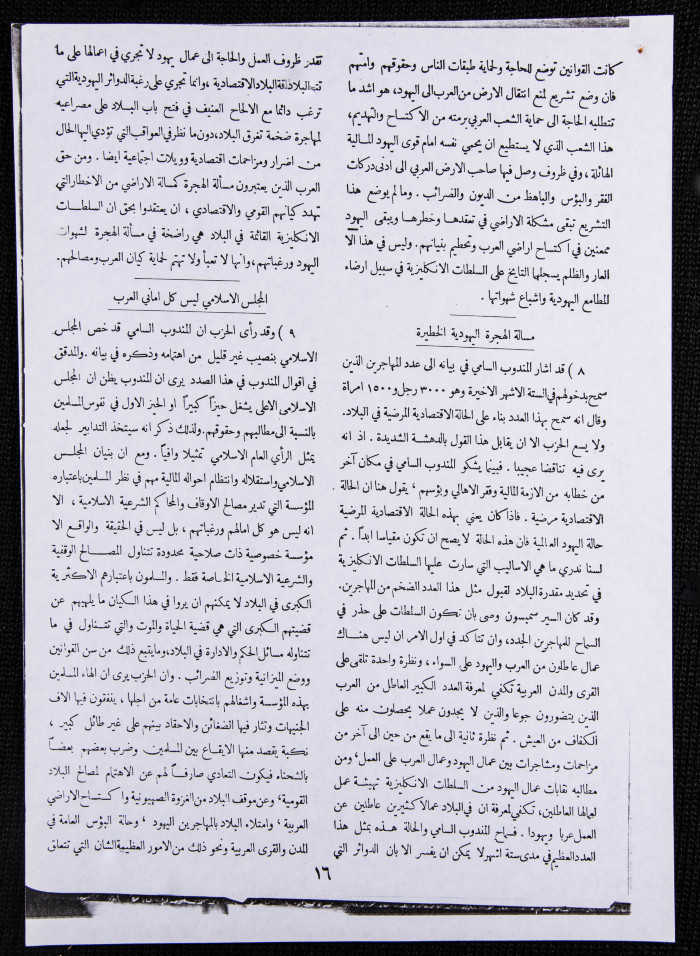 كانت القوانين توضع للحاجة ولحماية طبقات الناس وحقوقهم وامتهم
فان وضع تشريع لمنع انتقال الارض من العرب الى اليهود، هو اشد ما
تتطلبه الحاجة الى حماية الشعب العربي برمته من الاكتساح والتهديم،
هذا الشعب الذي لا يستطيع ان يحمي نفسه امام قوى اليهود المالية
الهائلة، وفي ظروف وصل فيها صاحب الارض العربي الى ادنى دركات
الفقر والبؤس والباهظ من الديون والضرائب. وما لم يوضع هذا
التشريع تبقى مشكلة الاراضي في تعقدها وخطرها ويبقى اليهود
ممعنين في اكتساح اراضي العرب وتحطيم بنيانهم. وليس في هذا الا
العار والظلم يسجلها التايخ على السلطات الانكليزية في سبيل ارضاء
المطامع اليهودية واشباع شهواتها.
مسالة الهجرة اليهودية الخطيرة
٨) قد اشار المندوب السامي في بيانه الى عدد المهاجرين الذين
سمح بدخولهم في الستة الاشهر الاخيرة وهو ٣٠٠٠ رجل و١٥٠٠ امراة
وقال انه سمح بهذا العدد بناء على الحالة الاقتصادية المرضية في البلاد.
ولا يسع الحزب الا ان يقابل هذا القول بالدهشة الشديدة. اذ انه
يرى فيه تناقضا عجيبا. فبينما يشكو المندوب السامي في مكان آخر
من خطابه من الازمة المالية وفقر الاهالي وبؤسهم، يقول هنا ان الحالة
الاقتصادية مرضية. فاذا كان يعني بهذه الحالة الاقتصادية المرضية
حالة اليهود العالمية فان هذه الحالة لا يصح ان تكون مقياسا ابداً. ثم
لسنا ندري ما هي الاساليب التي سارت عليها السلطات الانكليزية
في تحديد مقدرة البلاد لقبول مثل هذا العدد الضخم من المهاجرين.
وقد كان السير سمبسون وصى بان تكون السلطات على حذر في
السماح للمهاجرين الجدد، وان تتأكد في اول الامر ان ليس هناك
عمال عاطلون من العرب واليهود على السواء، ونظرة واحدة تلقى على
القرى والمدن العربية تكفي لمعرفة العدد الكبير العاطل من العرب
الذين يتضورون جوعا والذين لا يجدون عملا يحصلون منه على
الكفاف من العيش. ثم نظرة ثانية الى ما يقع من حين الى آخر من
مزاحمات ومشاجرات بين عمال اليهود وعمال العرب على العمل، ومن
مطالبه نقابات عمال اليهود من السلطات الانكليزية تهيئة عمل
لعمالها العاطلين، تكفي لمعرفة ان في البلاد عمالا كثيرين عاطلين عن
العمل عربا ويهودا. فسماح المندوب السامي والحالة هذه بمثل هذا
العدد العظيم في مدى ستة اشهر لا يمكن ان يفسر الا بان الدوائر التي
تقدر ظروف العمل والحاجة الى عمال يهود لا تجري في اعمالها على ما
البلاد الاقتصادية، وانما تجري على رغبة الدوائر اليهودية التي
ترغب دائما مع الالحاح العنيف في فتح باب البلاد على مصراعيه
لمهاجرة ضخمة تغرق البلاد، دون ما نظر في العواقب التي تؤدي اليها الحال
من اضرار ومزاحمات اقتصادية وويلات اجتماعية ايضا. ومن حق
العرب الذين يعتبرون مسألة الهجرة كمسالة الاراضي من الاخطار التي
تهدد كيانهم القومي والاقتصادي، ان يعتقدوا بحق ان السلطات
الانكليزية القائمة في البلاد هي راضخة في مسألة الهجرة لشهوات
اليهود ورغباتهم، وانها لا تعبأ ولا تهتم لحماية كيان العرب ومصالحهم.
المجلس الاسلامي ليس كل اماني العرب
٩) وقد رأى الحزب ان المندوب السامي قد خص المجلس
الاسلامي بنصيب غير قليل من اهتمامه وذكره في بيانه. والمدقق
في اقوال المندوب في هذا الصدد يرى ان المندوب يظن ان المجلس
الاسلامي الاعلى يشغل حيزاً كبيراً او الحيز الاول في نفوس المسلمين
بالنسبة الى مطالبهم وحقوقهم. ولذلك ذكر انه سيتخذ التدابير لجعله
يمثل الرأي العام الاسلامي تمثيلا وافياً. ومع ان بنيان المجلس
الاسلامي واستقلاله وانتظام احواله المالية مهم في نظر المسلمين باعتباره
المؤسسة التي تدير مصالح الاوقاف والمحاكم الشرعية الاسلامية، الا
انه ليس هو كل امالهم ورغباتهم، بل ليس في الحقيقة والواقع الا
مؤسسة خصوصية ذات صلاحية محدودة تتناول المصالح الوقفية
والشرعية الاسلامية الخاصة فقط. والمسلمون باعتبارهم الاكثرية
الكبرى في البلاد لا يمكنهم ان يروا في هذا الكيان ما يلهيهم عن
قضيتهم الكبرى التي هي قضية الحياة والموت والتي تتناول في ما
تتناوله مسائل الحكم والادارة في البلاد، وما يتبع ذلك من سن القوانين
ووضع الميزانية وتوزيع الضرائب. وان الحزب يرى ان الهاء المسلمين
بهذه المؤسسة واشغالهم بانتخابات عامة من اجلها، ينفقون فيها الاف
الجنيهات وتثار فيها الضغائن والاحقاد بينهم على غير طائل كبير،
نكبة يقصد منها الايقاع بين المسلمين وضرب بعضهم بعضاً
بالشحناء فيكون التعادي صارفاً لهم عن الاهتمام لمصالح البلاد
القومية، وعن موقف البلاد من الغزوة الصهيونية واكتساح الاراضي
العربية، وامتلاء البلاد بالمهاجرين اليهود، وحالة البؤس العامة في
المدن والقرى العربية ونحو ذلك من الامور العظيمة الشان التي تتعلق
١٦